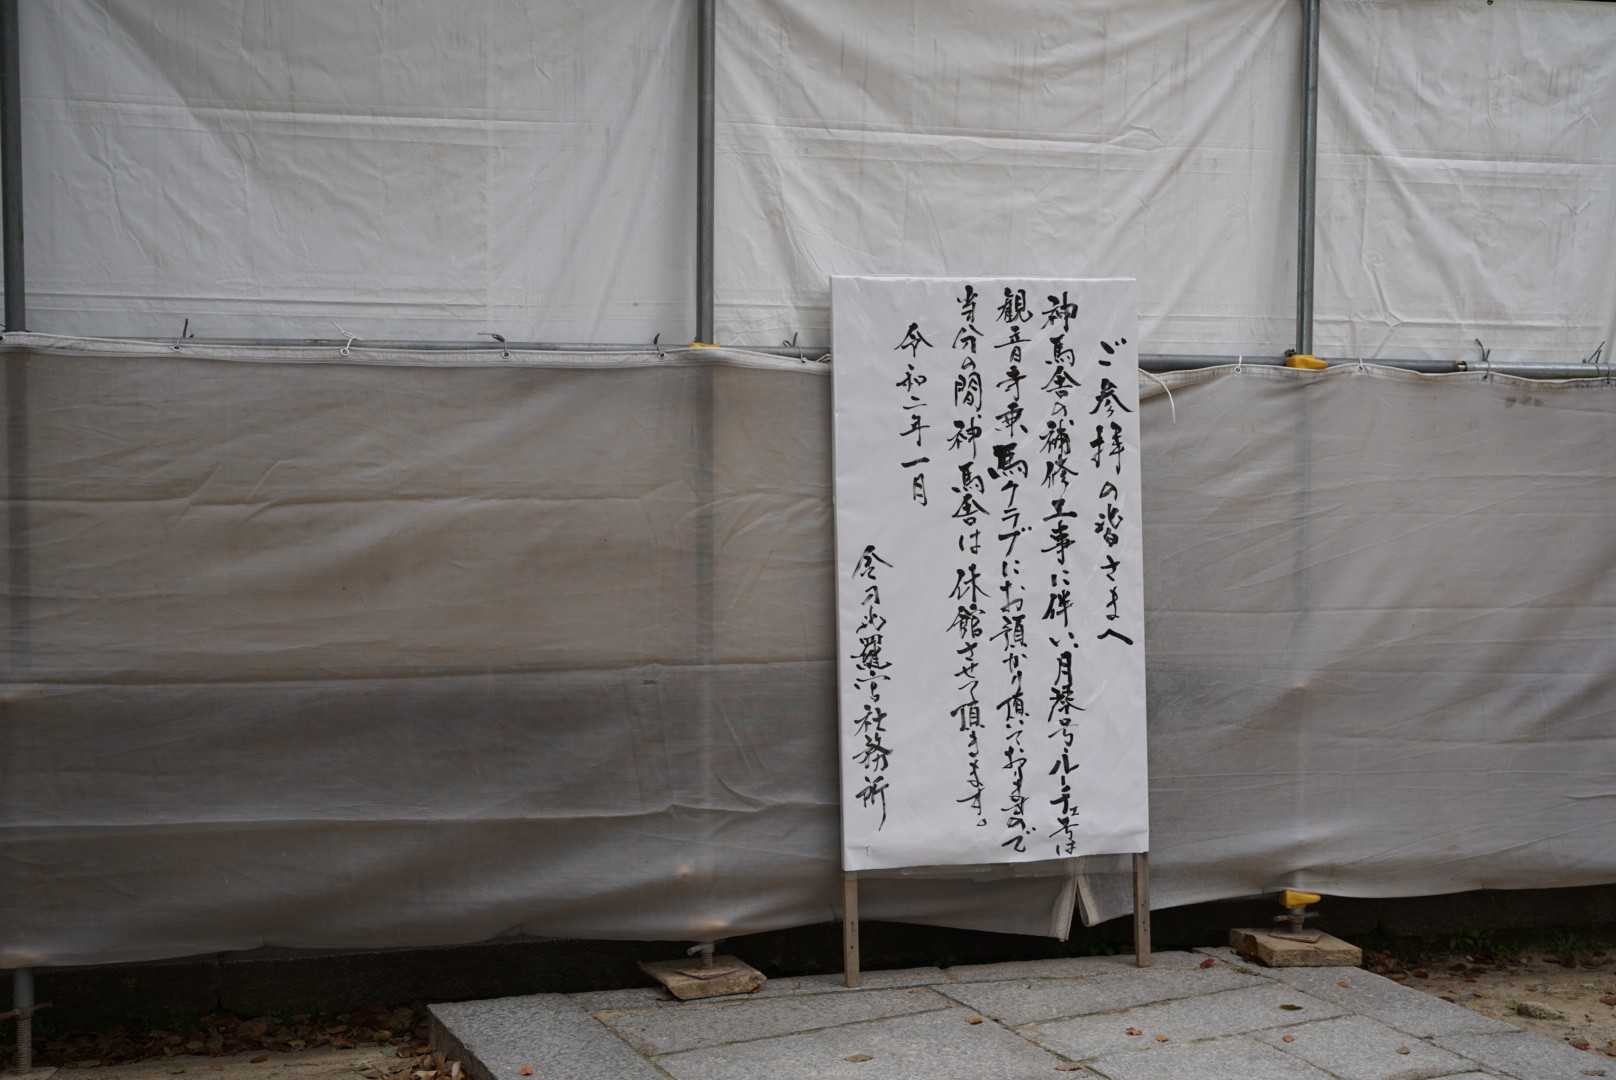 ご参拝の皆さまへ
神馬舎の補修工事に伴い、月琴号・ルーチェ号は
観音寺乗馬クラブにお預かり頂いておりますので
当分の間、神馬舎は休館させて頂きます。
令和二年一月
金刀比羅宮社務所